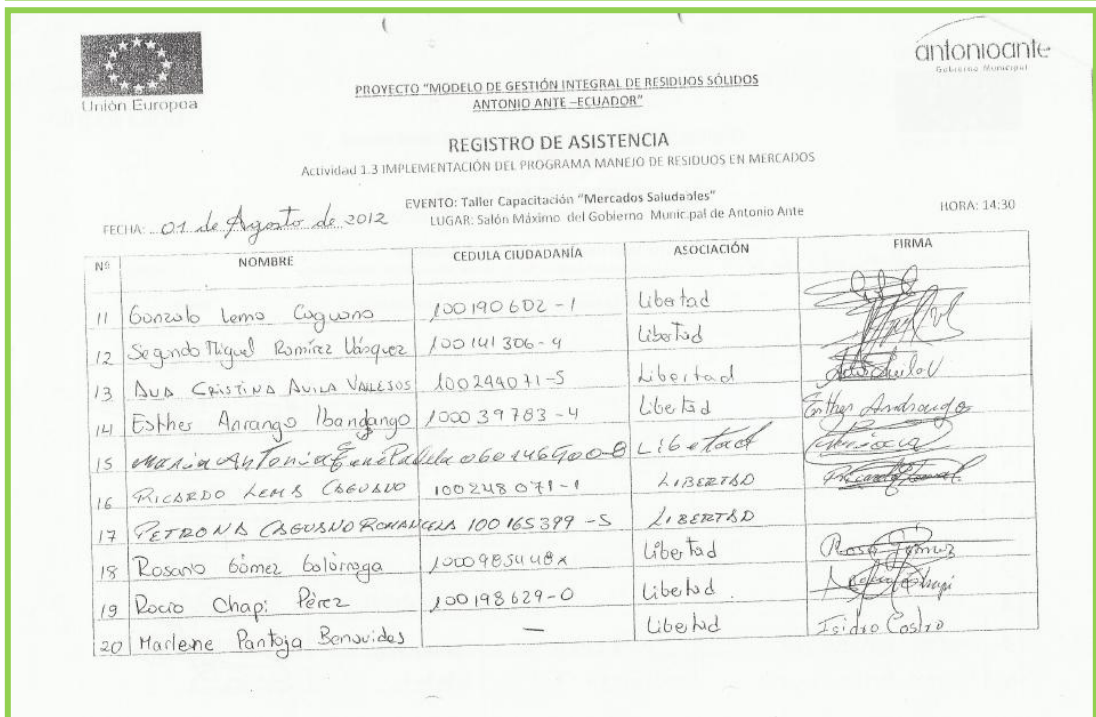 Unión Europea
antonioante
Gobierno Municipal
PROYECTO "MODELO DE GESTIÓN INTEGRAL DE RESIDUOS SÓLIDOS
ANTONIO ANTE –ECUADOR"
REGISTRO DE ASISTENCIA
Actividad 1.3 IMPLEMENTACIÓN DEL PROGRAMA MANEJO DE RESIDUOS EN MERCADOS
EVENTO: Taller Capacitación "Mercados Saludables"
FECHA: 01 de Agosto de 2012 LUGAR: Salón Máximo del Gobierno Municipal de Antonio Ante HORA: 14:30
Nº NOMBRE CEDULA CIUDADANÍA ASOCIACIÓN FIRMA
11 Gonzalo Lema Caguano 100190602-1 Libertad
12 Segundo Miguel Ramírez Vásquez 100141306-4 Libertad
13 ANA CRISTINA AVILA VALLEJOS 100244071-5 Libertad
14 Esther Anrango Ibandango 100039783-4 Libertad Esther Andrango
15 Maria Antonia 060146900-8 Libertad
16 RICARDO LEMA CAGUANO 100248071-1 LIBERTAD
17 PETRONA CAGUANO 100165399-5 LIBERTAD
18 Rosario Gómez 100098544 Libertad Rosa Gomez
19 Rocio Chapi Pérez 100198629-0 Libertad
20 Marlene Pantoja Benavides — Libertad Isidro Castro